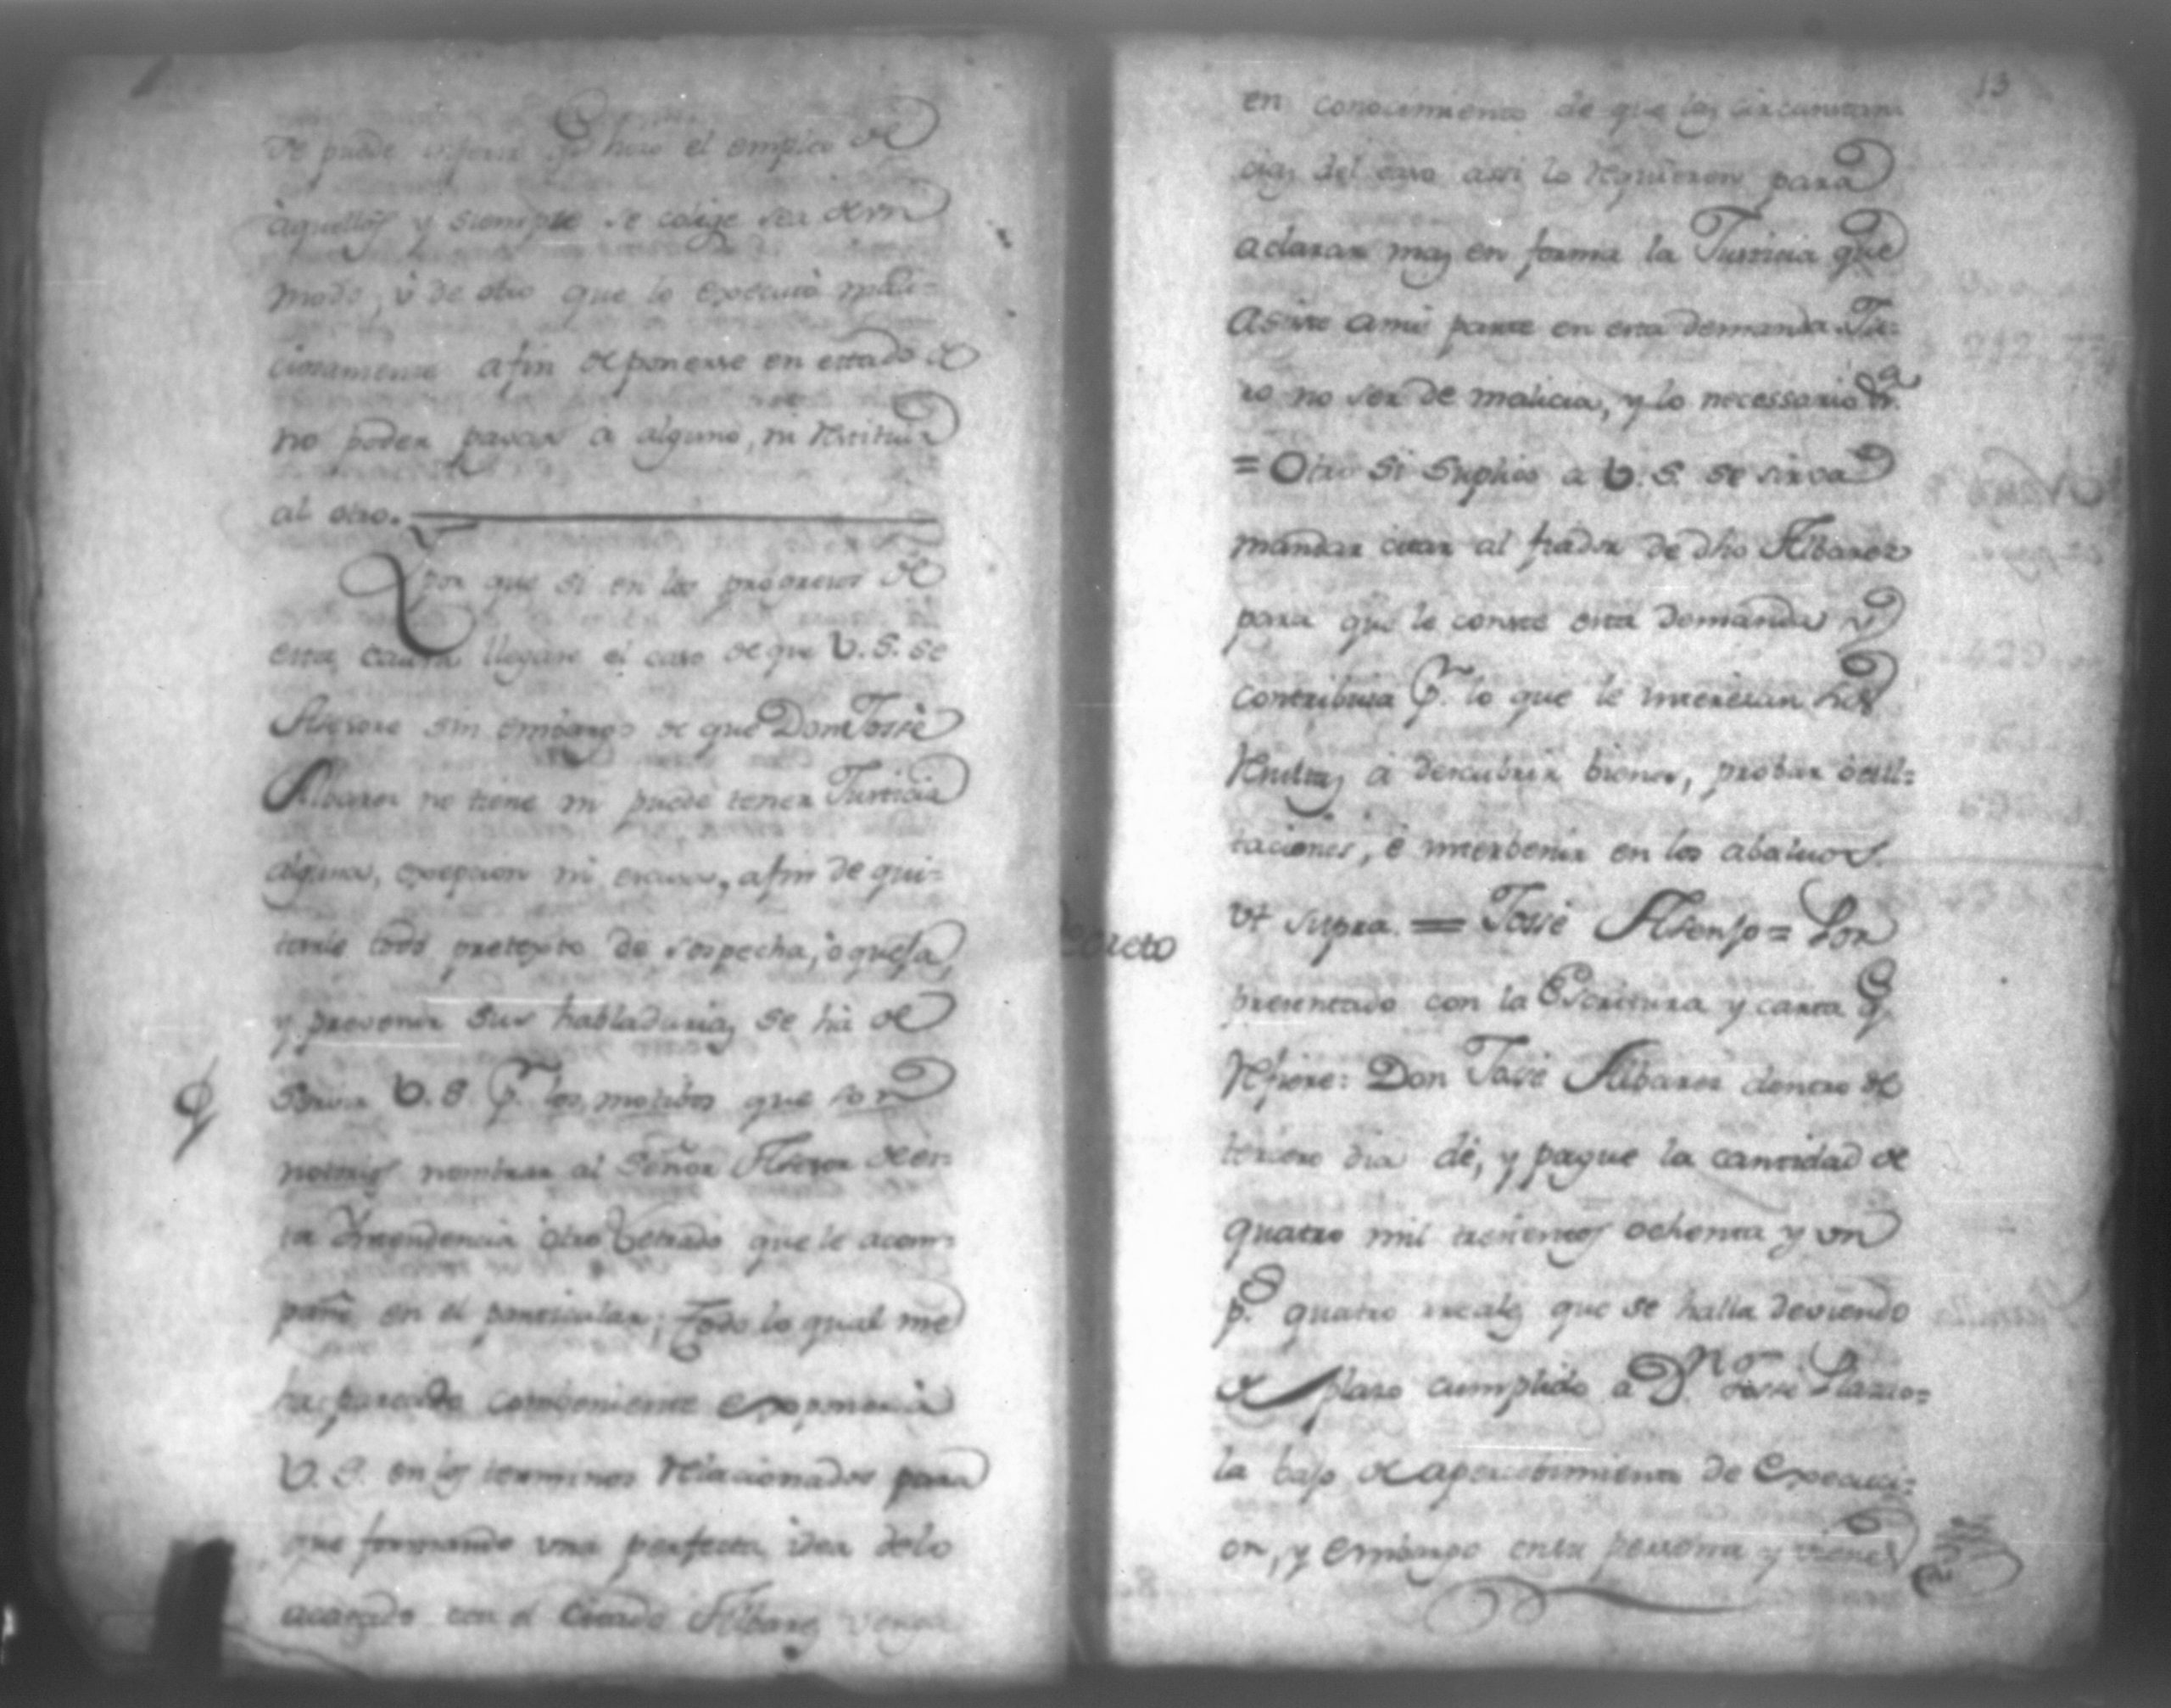 se puede inferir q.e hizo el empleo de
aquellos y siempre se colige sea de vn
modo, ú de otro que lo executó mali=
ciosamente afin de ponerse en estado de
no poder pagar á alguno, ni restituir
al otro.
Y por que si en los progresos de
esta causa llegare el caso de que V.S. se
Asesore sin embargo de que Don Josse
Albarez no tiene ni puede tener Justicia
alguna, exepcion ni excusa, afin de qui=
tarle todo pretexto de sospecha, ó quexa,
y prevenir sus habladurias se ha de
Servir V.S. p.r los motibos que son
notorios nombrar al Señor Asesor de es
ta Yntendencia otro Letrado que le acom=
pañe en el particular; Todo lo qual me
ha parecido combeniente exponer á
V.S. en los terminos relacionados para
que formando vna perfecta idea delo
acaezido con el citado Albarez venga
13
en conocimiento de que las circunstan
cias del caso assi lo requieren para
aclarar mas en forma la Justicia que
asiste ami parte en esta demanda. Ju=
ro no ser de malicia, y lo necessario &.a
= Otro si suplico a V.S. se sirva
mandar citar al fiador de dho Albarez
para que le conste esta demanda y
contribuia p.r lo que le interesan sus
resultas á descubrir bienes, probar ocul=
taciones, é interbenir en los abaluos.
Decreto
Vt supra. = Josse Asenjo = Por
presentado con la Escritura y carta q.e
refiere: Don Jose Albarez dentro de
tercero dia dé, y pague la cantidad de
quatro mil trescientos ochenta y vn
p.s quatro reales que se halla deviendo
de plazo cumplido a D.n Josse Llazio=
la bajo de apercebimiento de Execuci=
on, y embargo en su persona y vienes